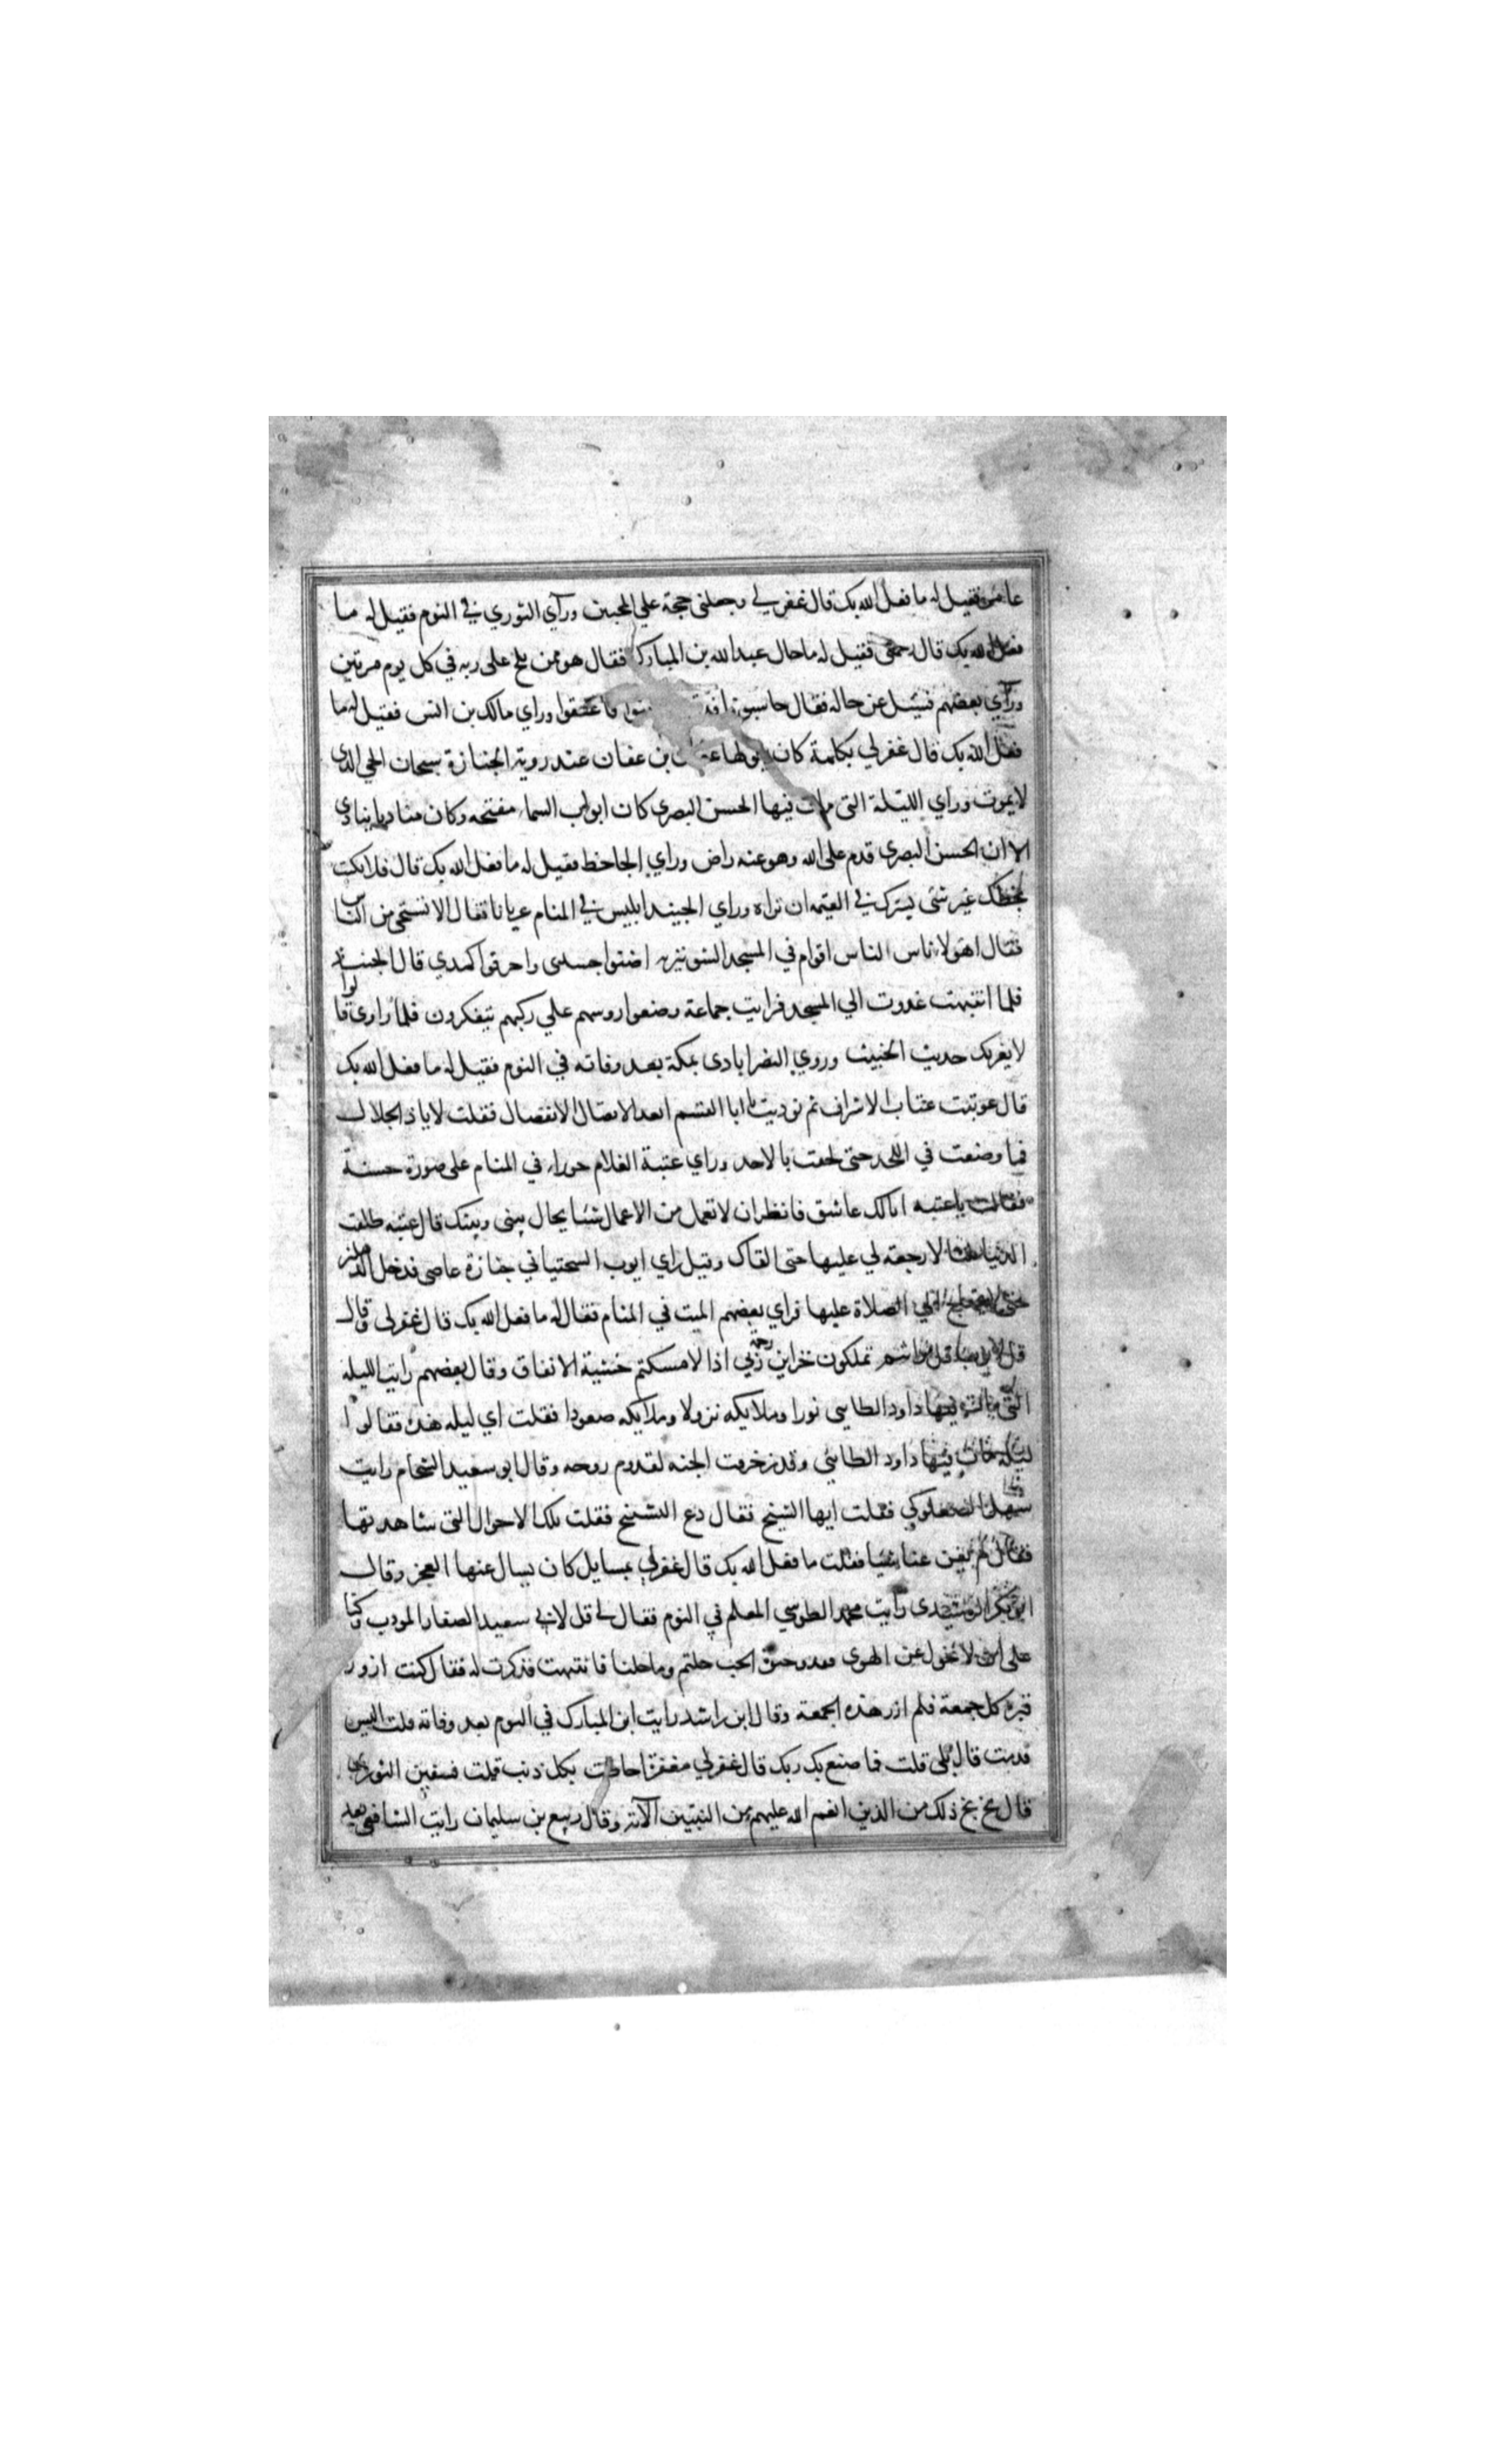 عامر فقيل له ما فعل الله بك قال غفر لي وجعلني حجة علي المحبين ورأي الثوري في النوم فقيل له ما
فعل الله بك قال رحمني فقيل له ما حال عبد الله بن المبارك فقال هو ممن يلج على ربه في كل يوم مرتين
ورأي بعضهم فسئل عن حاله فقال حاسبونا فدققوا فاعتقوا وراي مالك بن انس فقيل له ما
فعل الله بك قال غفر لي بكلمة كان يقولها عثمان بن عفان عند روية الجنازة سبحان الحي الذي
لا يموت وراي الليلة التي مات فيها الحسن البصري كان ابواب السماء مفتحه وكان مناديا ينادي
الا ان الحسن البصرى قدم على الله وهو عنه راض وراي الجاحظ فقيل له ما فعل الله بك قال فلا تكتب
بخطك غير شئ يسرك في القيمه ان تراه وراي الجنيد ابليس في المنام عريانا فقال الا تستحي من الناس
فقال اهولاء ناس الناس اقوام في المسجد الشونيزيه اضنوا جسدي واحرقوا كبدي قال الجنيد
فلما انتبهت غدوت الي المسجد فرايت جماعة وضعوا روسهم علي ركبهم يتفكرون فلما راوني قالوا
لا يغرنك حديث الخبيث وروي النصرابادى بمكة بعد وفاته في النوم فقيل له ما فعل الله بك
قال عوتبت عتاب الاشراف ثم نوديت يا ابا القسم ابعد الاتصال الانفصال فقلت لا يا ذا الجلال
فما وضعت في اللحد حتى لحقت بالاحد وراي عتبة الغلام حوراء في المنام على صورة حسنة
فقالت يا عتبه انا لك عاشق فانظر ان لا تعمل من الاعمال شئا يحال بيني وبينك قال عتبه طلقت
الدنيا ثلثا لا رجعة لي عليها حتى القاك وقيل راي ايوب السختياني جنازة عاصى فدخل الدهليز
حتى لا يحتاج الي الصلاة عليها فراي بعضهم الميت في المنام فقال له ما فعل الله بك قال غفر لي وقال
قل لايوب قل لو انتم تملكون خزاين رحمة ربي اذا لامسكتم خشية الانفاق وقال بعضهم رايت الليله
التي مات فيها داود الطائي نورا وملايكه نزولا وملايكه صعودا فقلت اي ليله هذه فقالوا
ليله مات فيها داود الطائي وقد زخرفت الجنه لقدوم روحه وقال ابو سعيد الشحام رايت
سهلا الصعلوكي فقلت ايها الشيخ فقال دع التشيخ فقلت تلك الاحوال التي شاهدتها
فقال لم تغن عنا شيا فقلت ما فعل الله بك قال غفر لي بمسايل كان يسال عنها العجز وقال
ابو بكر الرشيدى رايت محمد الطوسي المعلم في النوم فقال لي قل لابي سعيد الصفار المودب وكنا
على ان لا نحول عن الهوي فقد وحيوة الحب حلتم وما حلنا فانتبهت فذكرت له فقال كنت ازور
قبره كل جمعة فلم ازر هذه الجمعة وقال ابن راشد رايت ابن المبارك في النوم بعد وفاته فقلت اليس
قدمت قال بلى قلت فما صنع بك ربك قال غفر لي مغفرة احاطت بكل ذنب قلت فسفين الثوري
قال بخ بخ ذلك من الذين انعم الله عليهم من النبيين الآية وقال ربيع بن سليمان رايت الشافعي بعد